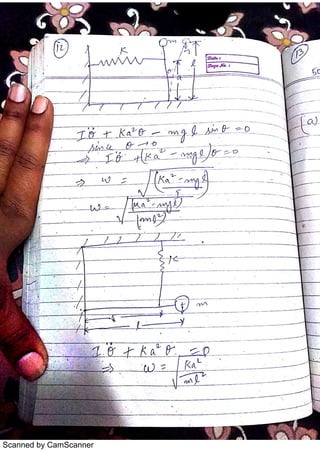 12
K
m
l
Date :
Page No. :
13
Iθ̈ + Ka²θ - mgl sinθ = 0
since θ → 0
⇒ Iθ̈ + (Ka² - mgl)θ = 0
⇒ ω = √((Ka² - mgl)/I)
ω = √((Ka² - mgl)/(ml²))
K
m
l
Iθ̈ + Ka²θ = 0
⇒ ω = √(Ka²/ml²)
Scanned by CamScanner